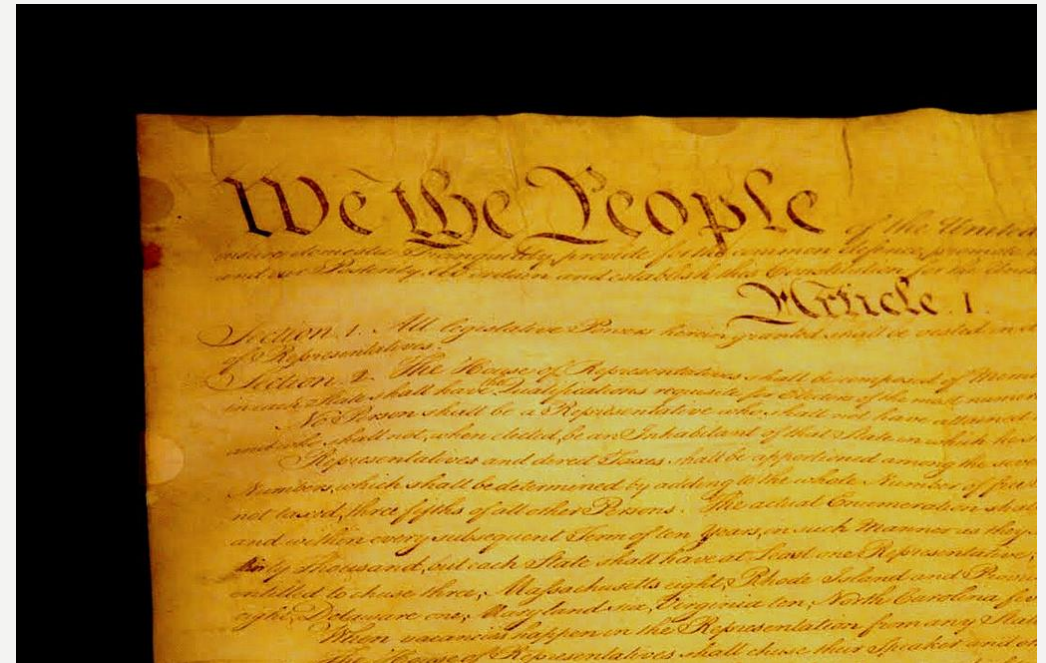 We the People of the United
insure domestic Tranquility, provide for the common defence, promote
and our Posterity, do ordain and establish this Constitution for the Unit
Article. I.
Section. 1. All legislative Powers herein granted shall be vested in a
of Representatives.
Section. 2. The House of Representatives shall be composed of Mem
in each State shall have the Qualifications requisite for Electors of the most numer
No Person shall be a Representative who shall not have attained
and who shall not, when elected, be an Inhabitant of that State in which he s
Representatives and direct Taxes shall be apportioned among the seve
Numbers, which shall be determined by adding to the whole Number of free
not taxed, three fifths of all other Persons. The actual Enumeration shal
and within every subsequent Term of ten Years, in such Manner as they
thirty Thousand, but each State shall have at Least one Representative;
entitled to chuse three, Massachusetts eight, Rhode Island and Provi
eight, Delaware one, Maryland six, Virginia ten, North Carolina five
When vacancies happen in the Representation from any State
The House of Representatives shall chuse their Speaker and ot